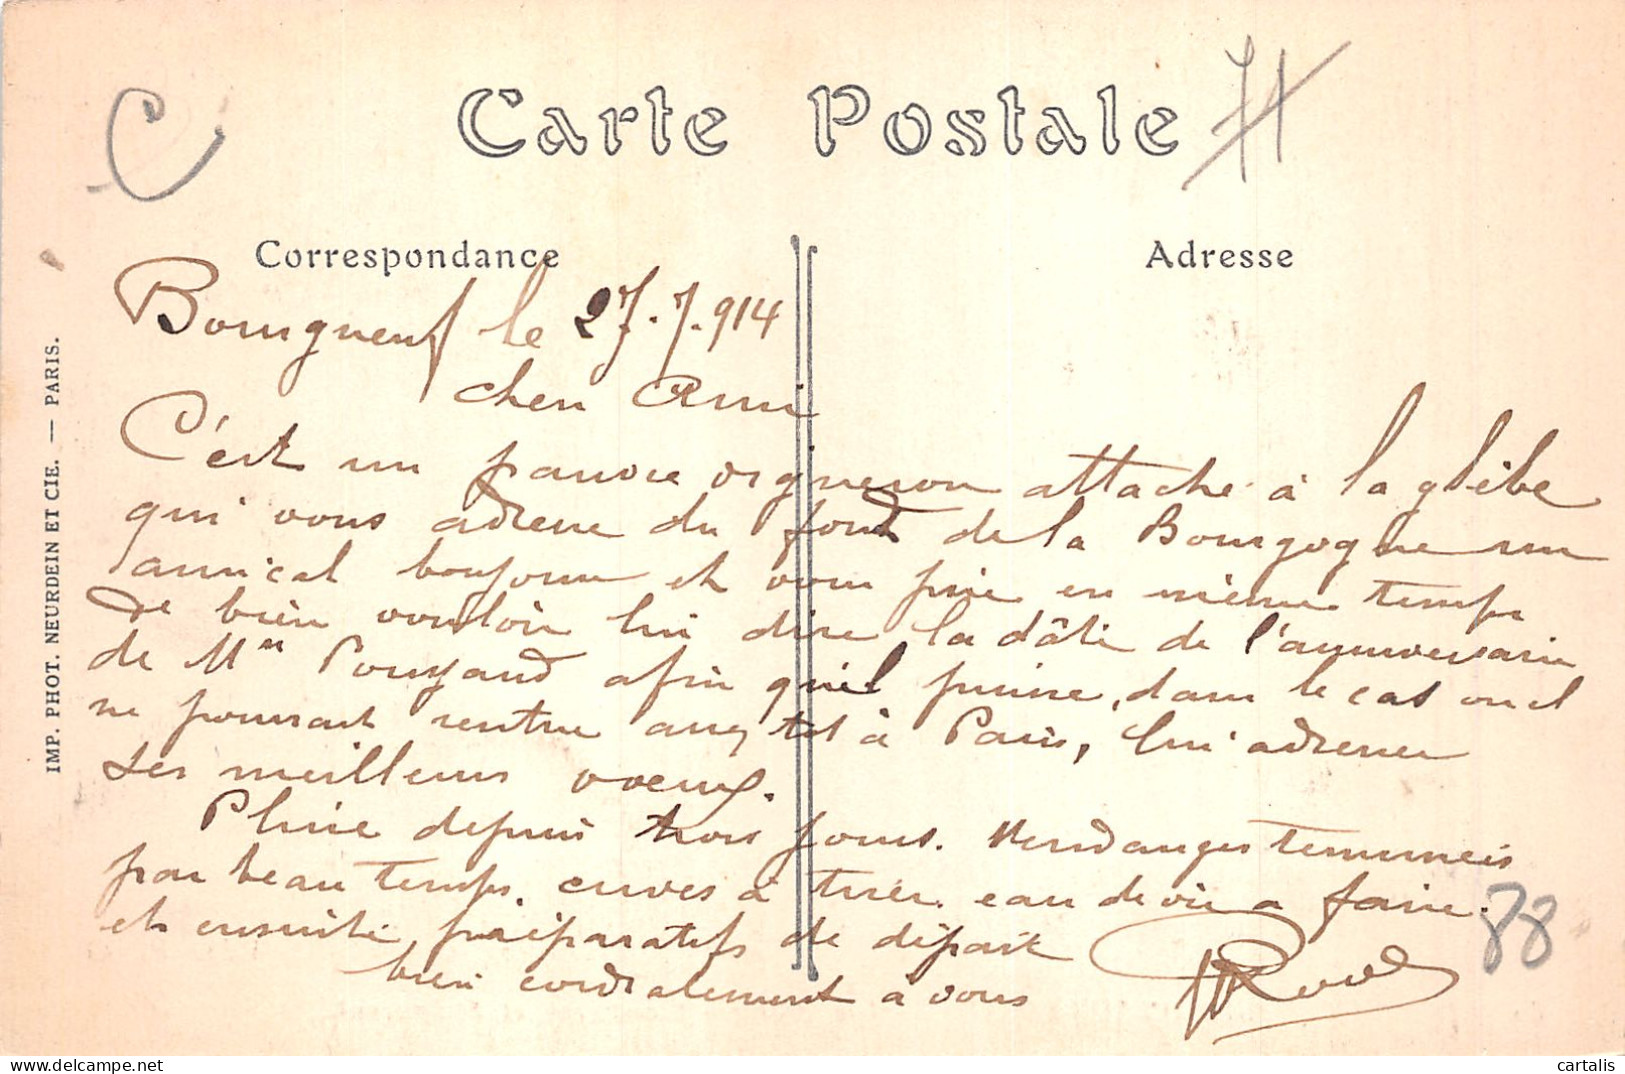 Carte Postale
71
C
Correspondance
Adresse
IMP. PHOT. NEURDEIN ET CIE. — PARIS.
Bourgneuf le 27.7.914
Cher Ami
C'est un pauvre vigneron attaché à la glèbe
qui vous adresse du fond de la Bourgogne un
amical bonjour et vous prie en même temps
de bien vouloir lui dire la date de l'anniversaire
de Mme afin qu'il puisse, dans le cas où il
ne pourrait rentrer assez tôt à Paris, lui adresser
ses meilleurs voeux.
Pluie depuis trois jours. Vendanges terminées
par beau temps. cuves à tirer. eau de vie a faire.
et ensuite préparatifs de départ
bien cordialement à vous
88
cartalis